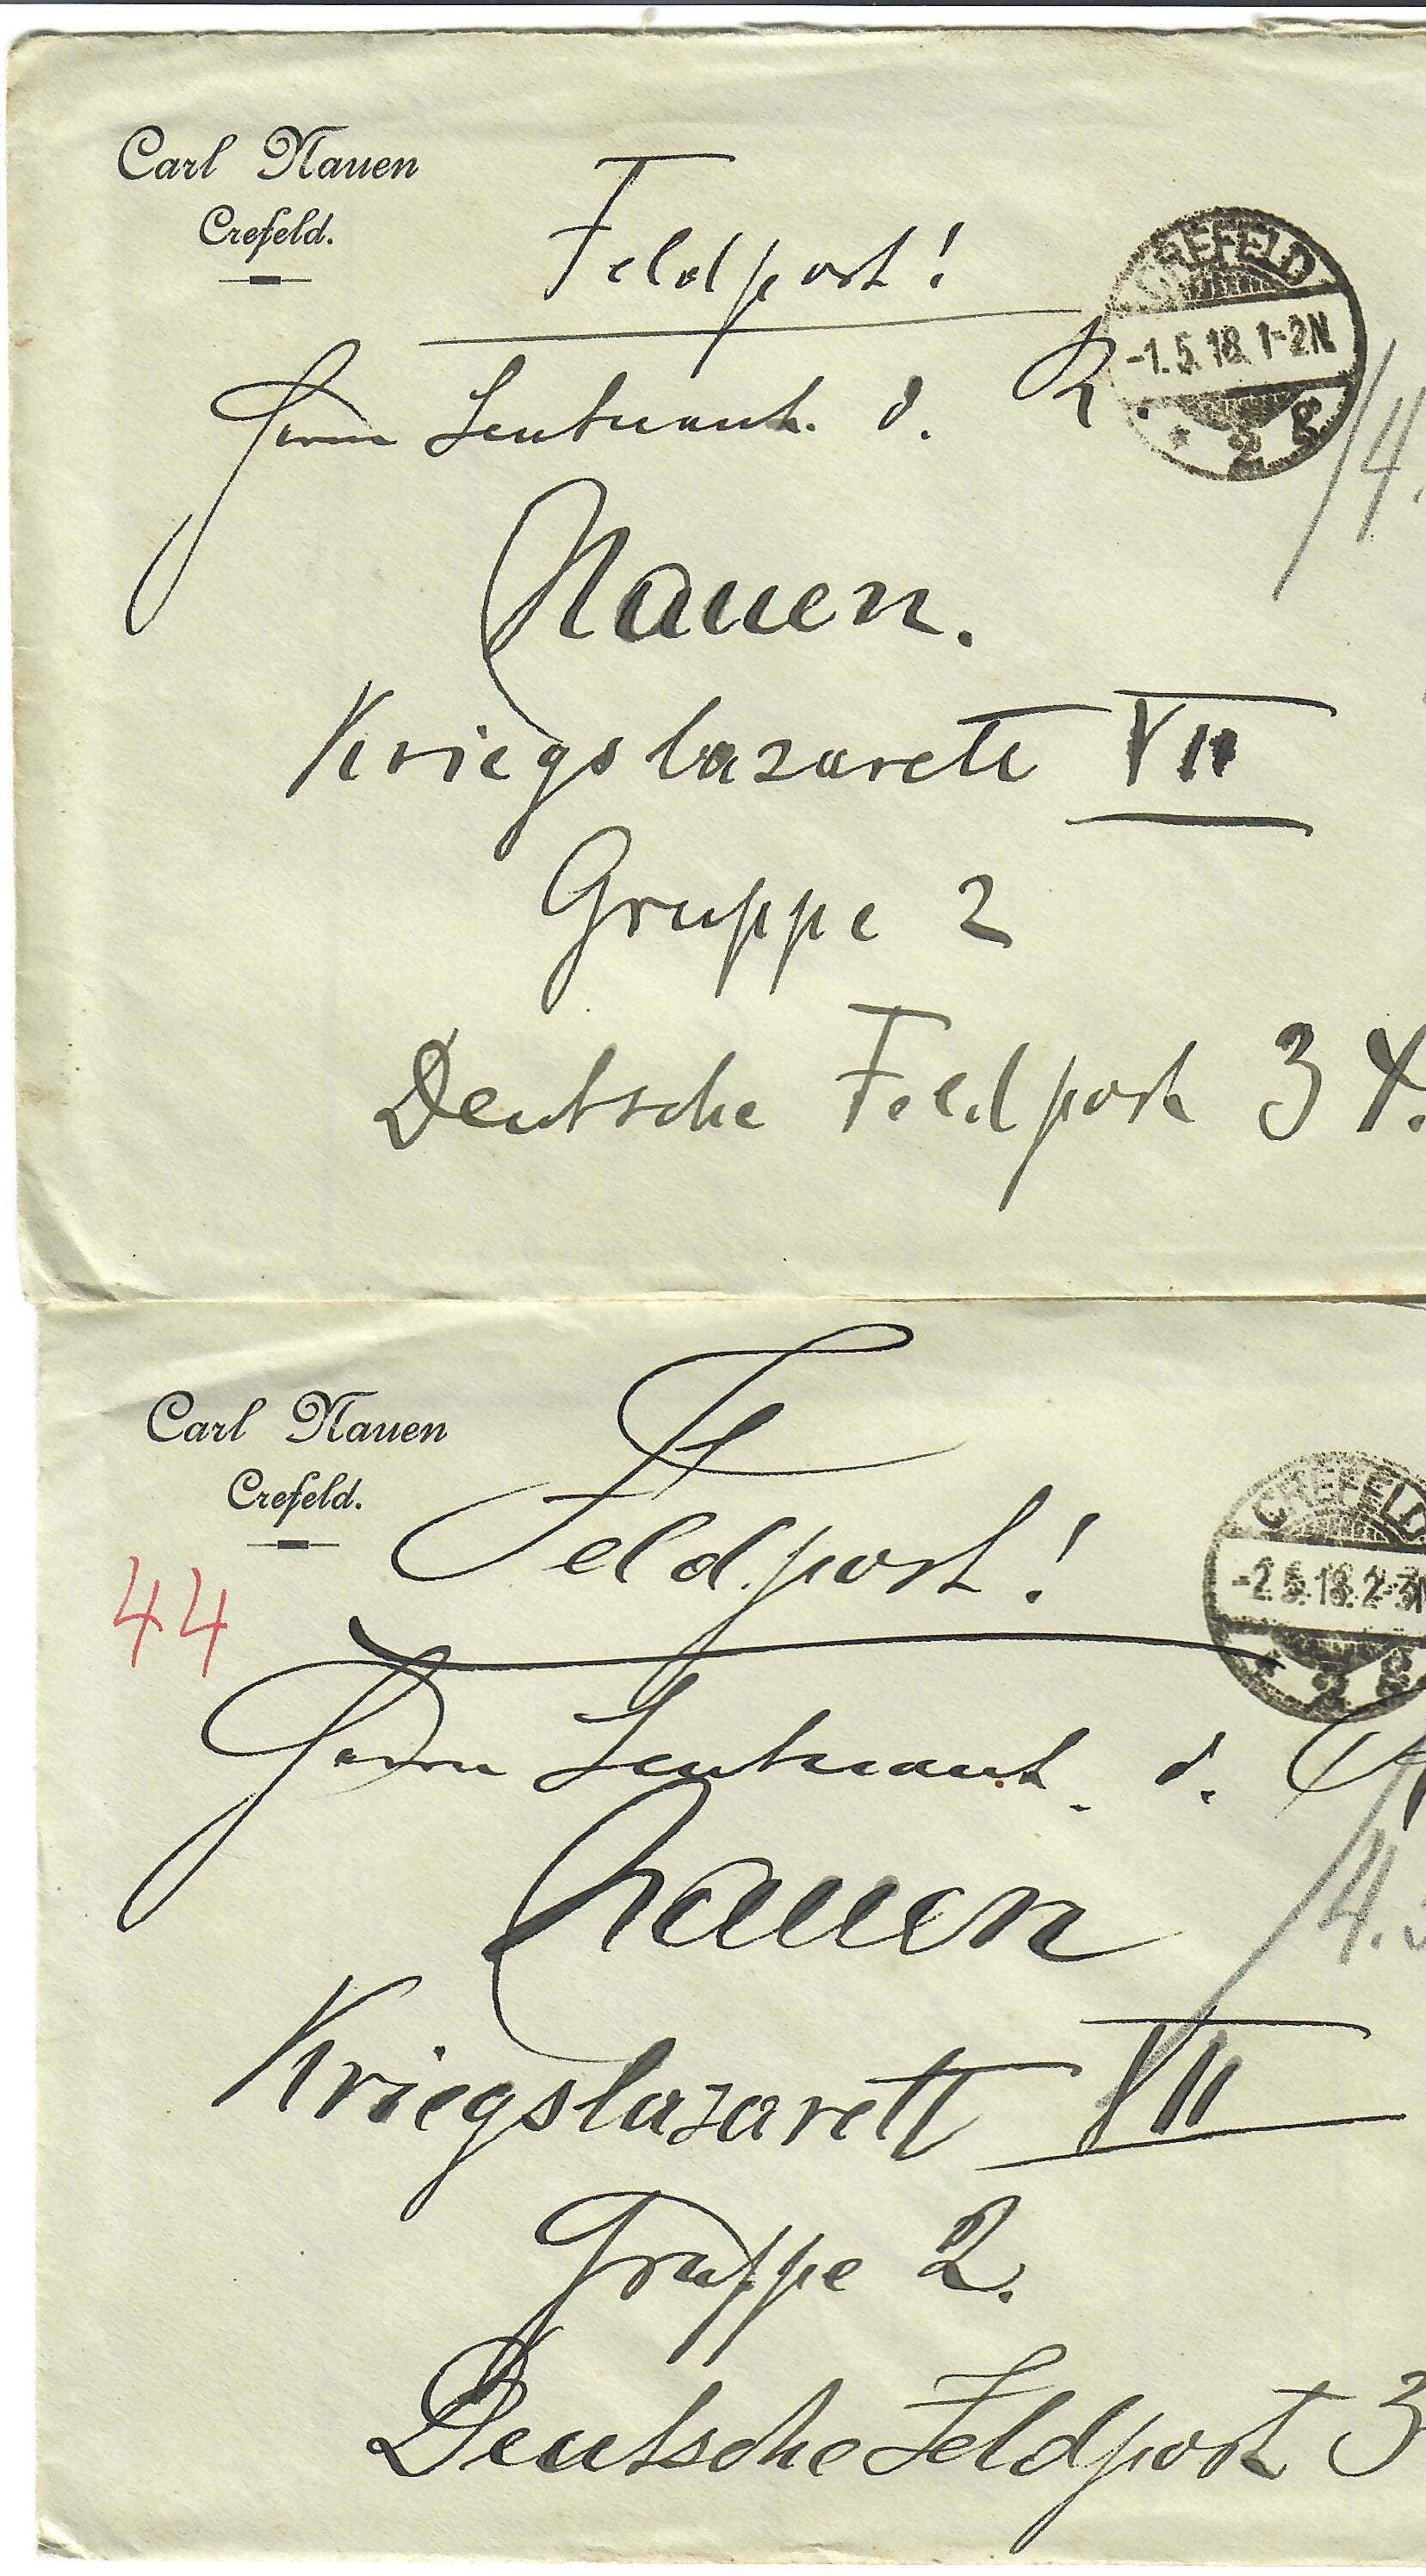 Carl Nauen
Crefeld.
Feldpost!
CREFELD
-1.5.18.1-2N.
* 2 g
Herrn Leutnant. d. R.
Nauen.
Kriegslazarett VII
Gruppe 2
Deutsche Feldpost 34.
/4.
Carl Nauen
Crefeld.
Feldpost!
CREFELD
-2.5.18.2-3N
2 g
44
Herrn Leutnant. d.
Nauen
/4.
Kriegslazarett VII
Gruppe 2.
Deutsche Feldpost 3